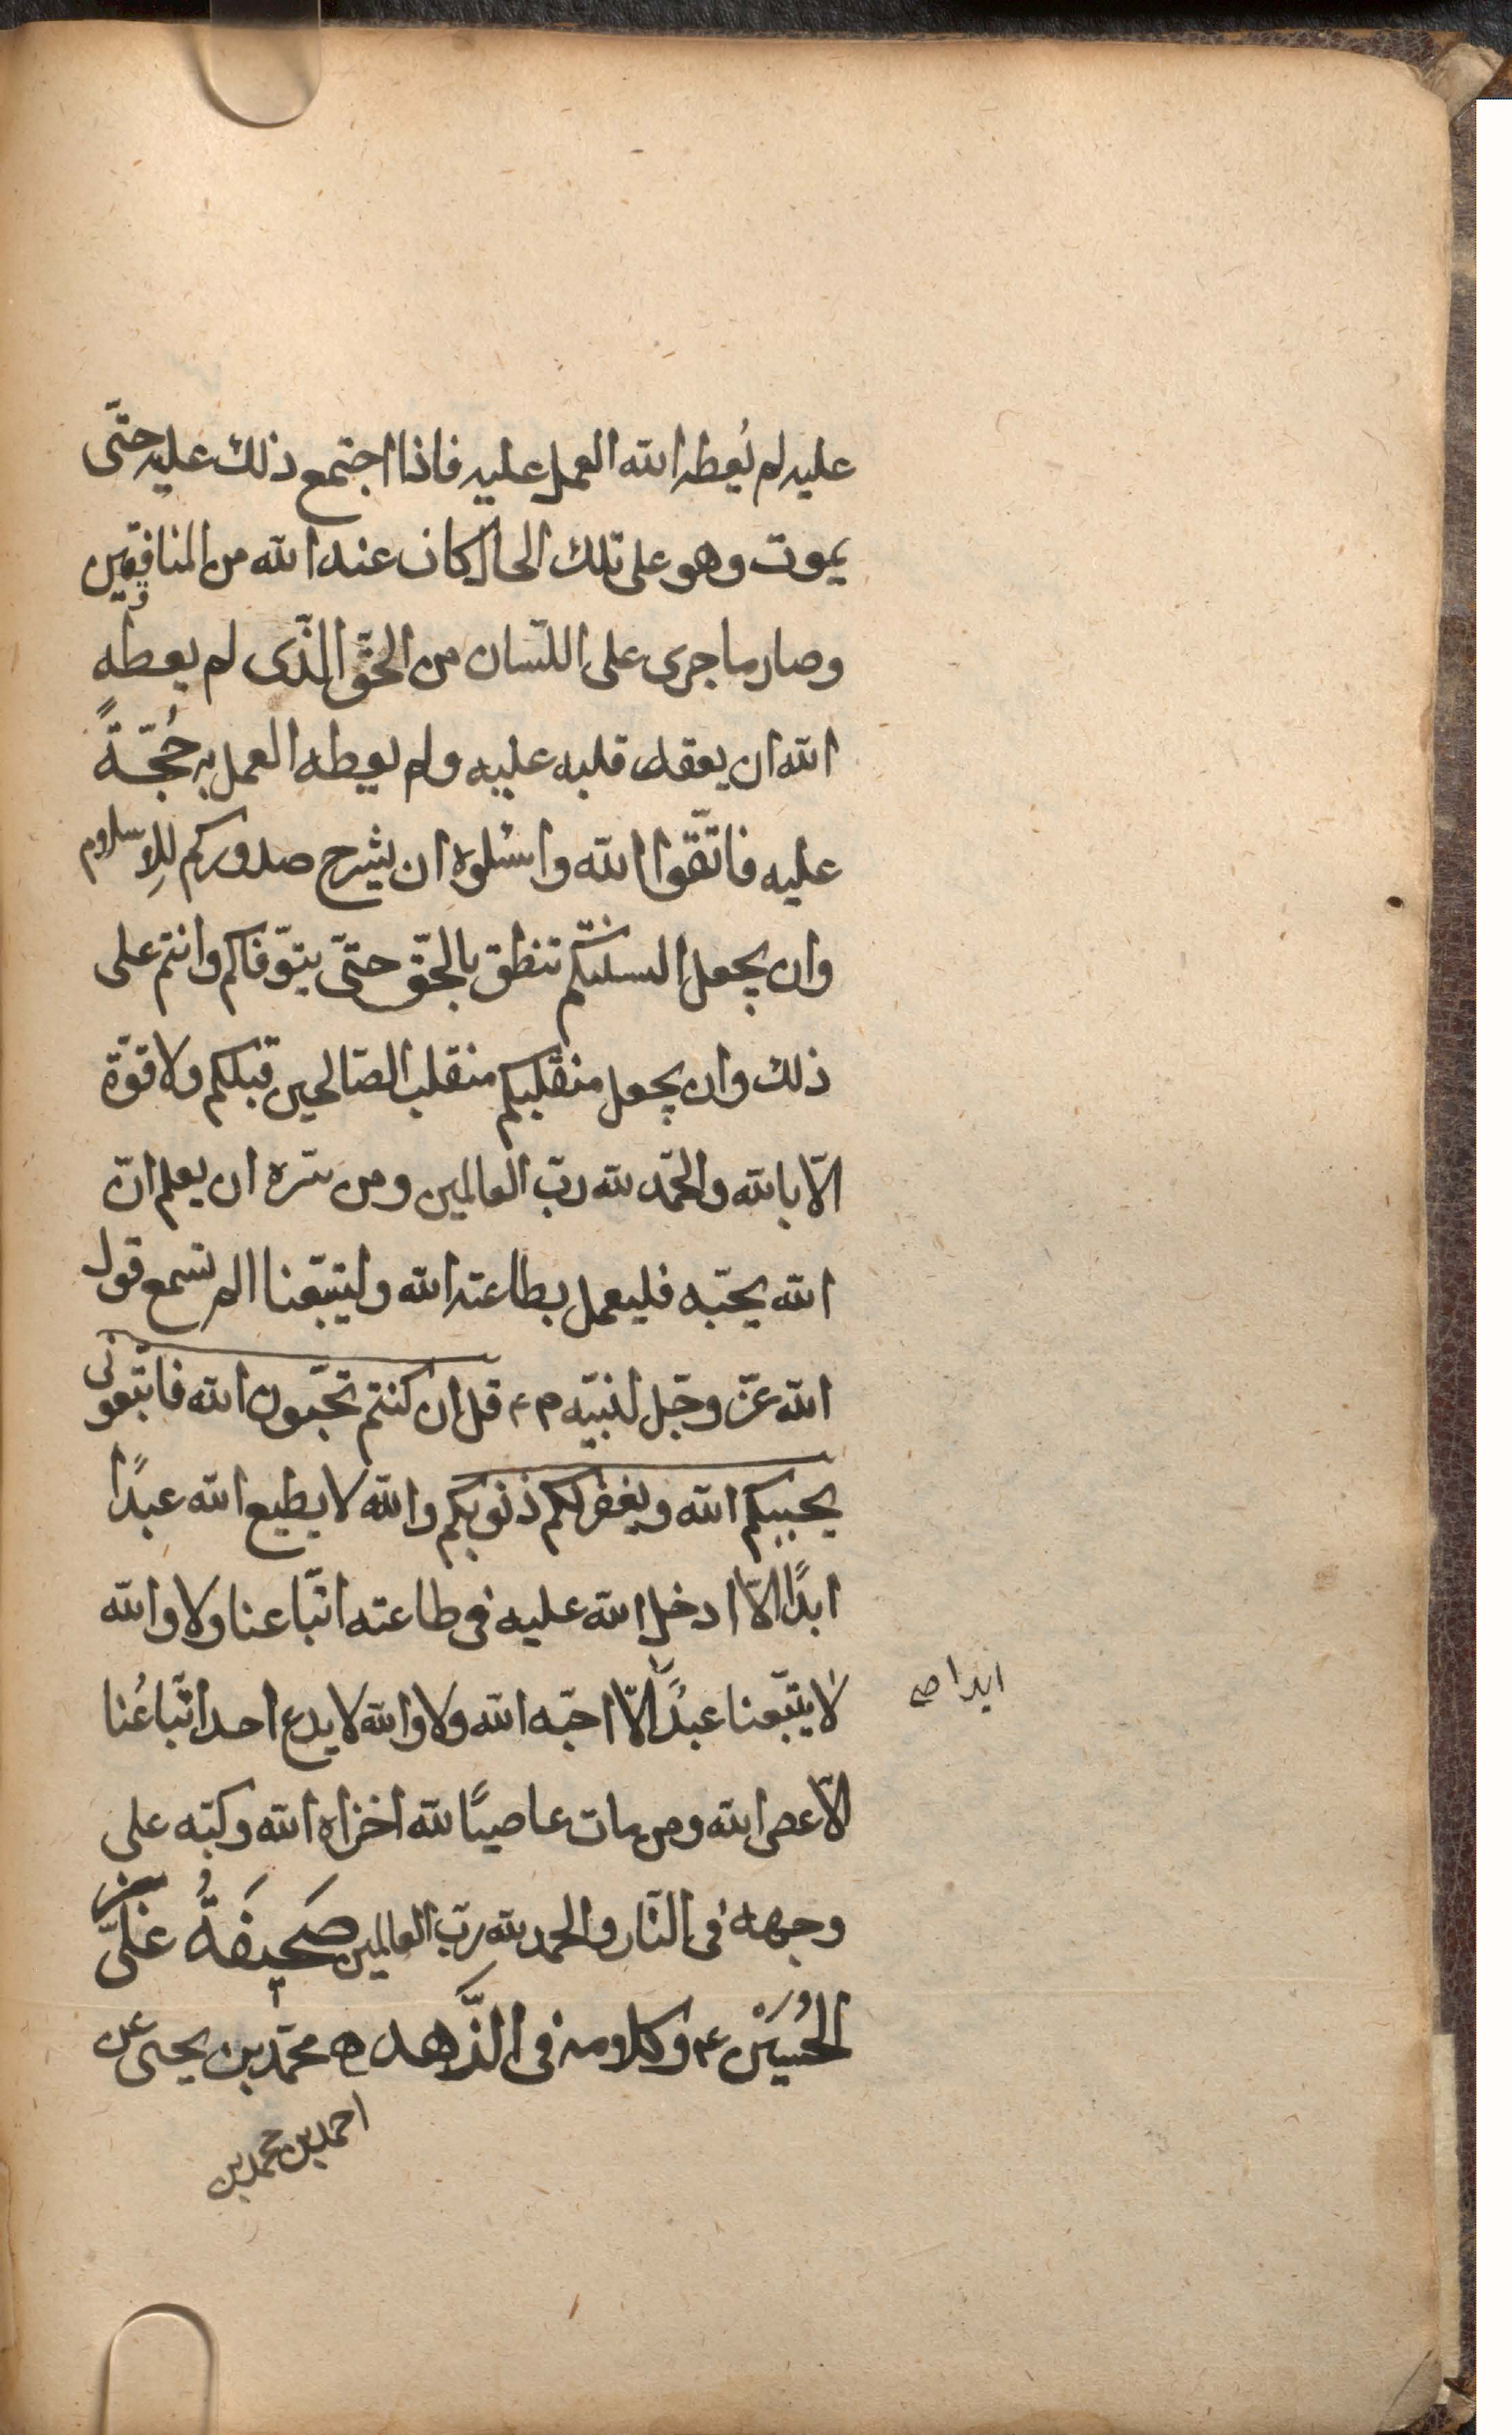 عليه لم يُعطه الله العمل عليه فاذا اجتمع ذلك عليه حتّى
يموت وهو على تلك الحال كان عند الله من المنافقين
وصار ما جرى على اللّسان من الحقّ الّذى لم يعطه
الله ان يعقد قلبه عليه ولم يعطه العمل به حُجّةً
عليه فاتّقوا الله واسئلوه ان يشرح صدوركم للاسلام
وان يجعل السنتكم تنطق بالحقّ حتّى يتوّفاكم وانتم على
ذلك وان يجعل منقلبكم منقلب الصّالحين قبلكم ولا قوّة
الّا بالله والحمد لله ربّ العالمين ومن سرّه ان يعلم انّ
الله يحبّه فليعمل بطاعته الله وليتّبعنا الم تسمع قول
الله عزّ وجلّ لنبيّه ص قل ان كنتم تحبّون الله فاتّبعونى
يحببكم الله ويغفر لكم ذنوبكم والله لا يطيع الله عبدًا
ابدًا الّا ادخل الله عليه فى طاعته اتّباعنا ولا والله
لا يتّبعنا عبدًا الّا احبّه الله ولا والله لا يدع احد اتّباعنا
ابدا صح
الّا عصى الله ومن مات عاصيًا لله اخزاه الله وكبّه على
وجهه فى النّار والحمد لله ربّ العالمين صَحيفَةُ علىّ بن
الحُسَيْن ع وكلامه فى الزّهد محمّد بن يحيى عن
احمد بن محمد بن